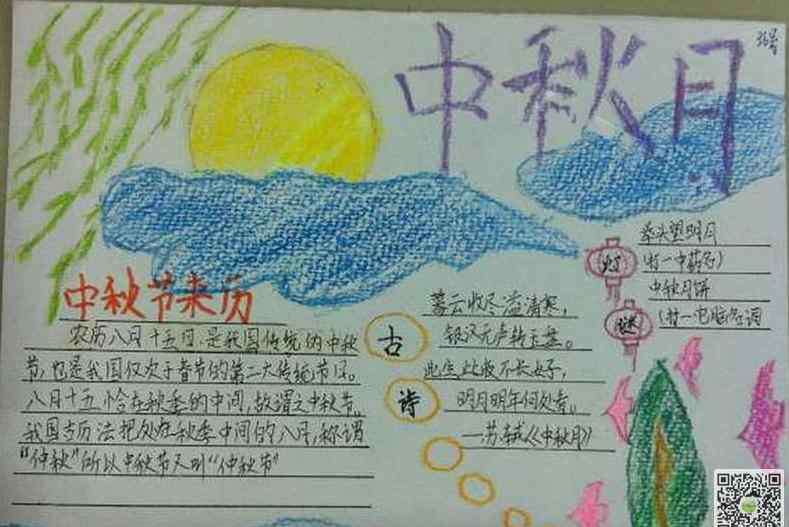 中秋月
36号
中秋节来历
农历八月十五日,是我国传统的中秋
节,也是我国仅次于春节的第二大传统节日。
八月十五恰在秋季的中间,故谓之中秋节。
我国古历法把处在秋季中间的八月,称谓
“仲秋”所以中秋节又叫“仲秋节”
古
诗
暮云收尽溢清寒,
银汉无声转玉盘。
此生此夜不长好,
明月明年何处看。
—苏轼《中秋月》
灯
谜
举头望明月
(打一中药名)
中秋月饼
(打一电脑名词